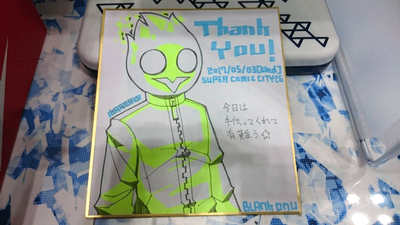 Thank
You!
2017/05/03[Wed]
SUPER COMIC CITY26
今日は
手伝ってくれて
有難う☆
BLANK ONLY